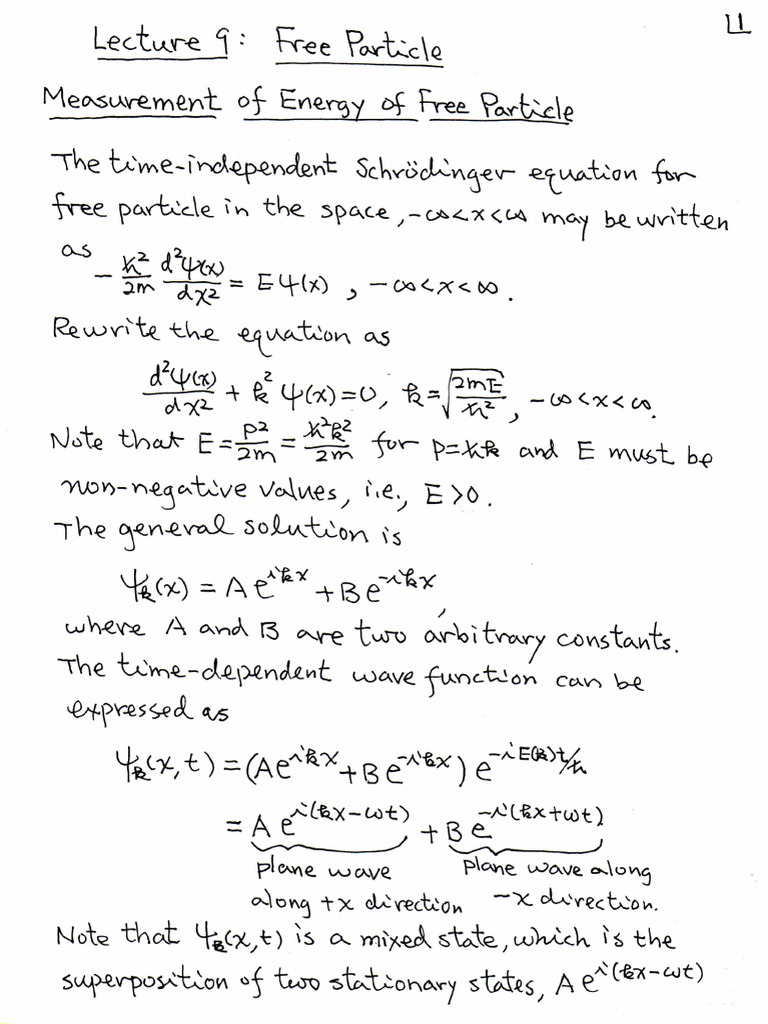 1
Lecture 9: Free Particle
Measurement of Energy of Free Particle
The time-independent Schrödinger equation for
free particle in the space, -∞<x<∞ may be written
as -ħ²/2m d²ψ(x)/dx² = Eψ(x), -∞<x<∞.
Rewrite the equation as
d²ψ(x)/dx² + k² ψ(x)=0, k=√(2mE/ħ²), -∞<x<∞.
Note that E=p²/2m=ħ²k²/2m for p=ħk and E must be
non-negative values, i.e., E>0.
The general solution is
ψₖ(x) = A e^{ikx} + B e^{-ikx},
where A and B are two arbitrary constants.
The time-dependent wave function can be
expressed as
ψₖ(x,t) = (A e^{ikx} + B e^{-ikx}) e^{-iE(k)t/ħ}
= A e^{i(kx-ωt)} + B e^{-i(kx+ωt)}
plane wave plane wave along
along +x direction -x direction.
Note that ψₖ(x,t) is a mixed state, which is the
superposition of two stationary states, A e^{i(kx-ωt)}